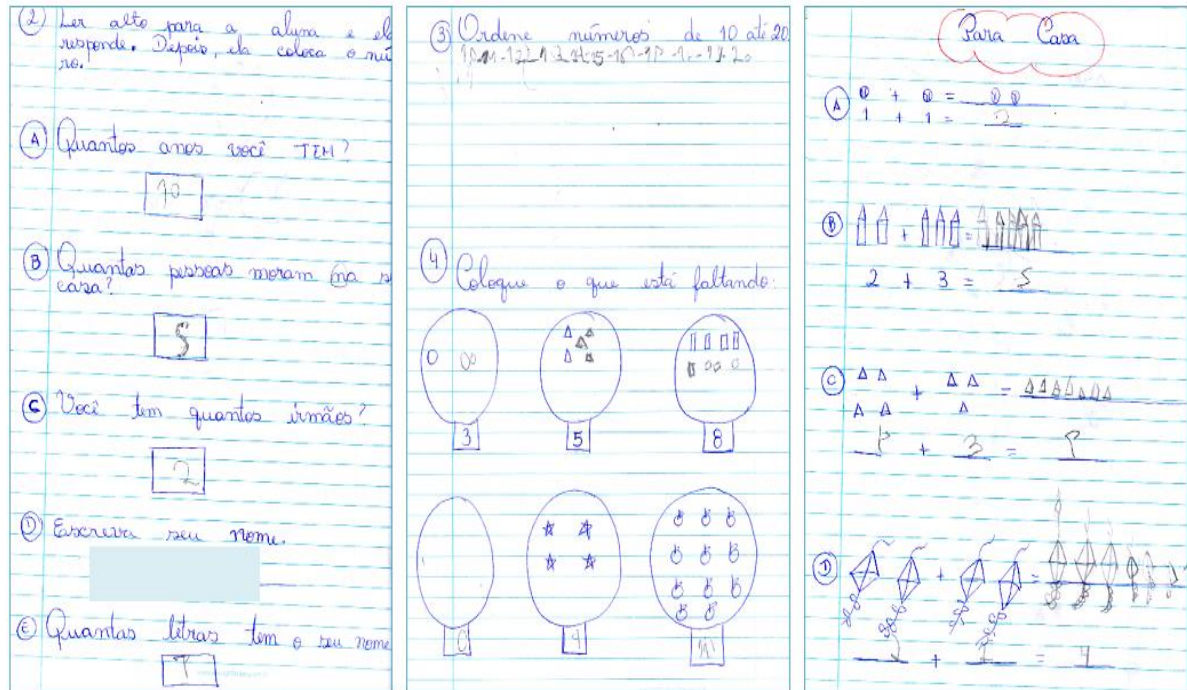 2 Ler alto para a aluna e el
responde. Depois, ela coloca o nú
ro.
A Quantos anos você TEM?
10
B Quantas pessoas moram na s
casa?
5
C Você tem quantos irmãos?
2
D Escreva seu nome.
E Quantas letras tem o seu nome
7
3 Ordene números de 10 até 20
4 Coloque o que está faltando:
3 5 8
0 4
Para Casa
A
1 + 1 = 2
B
2 + 3 = 5
C
+ 3 =
D
+ = 4